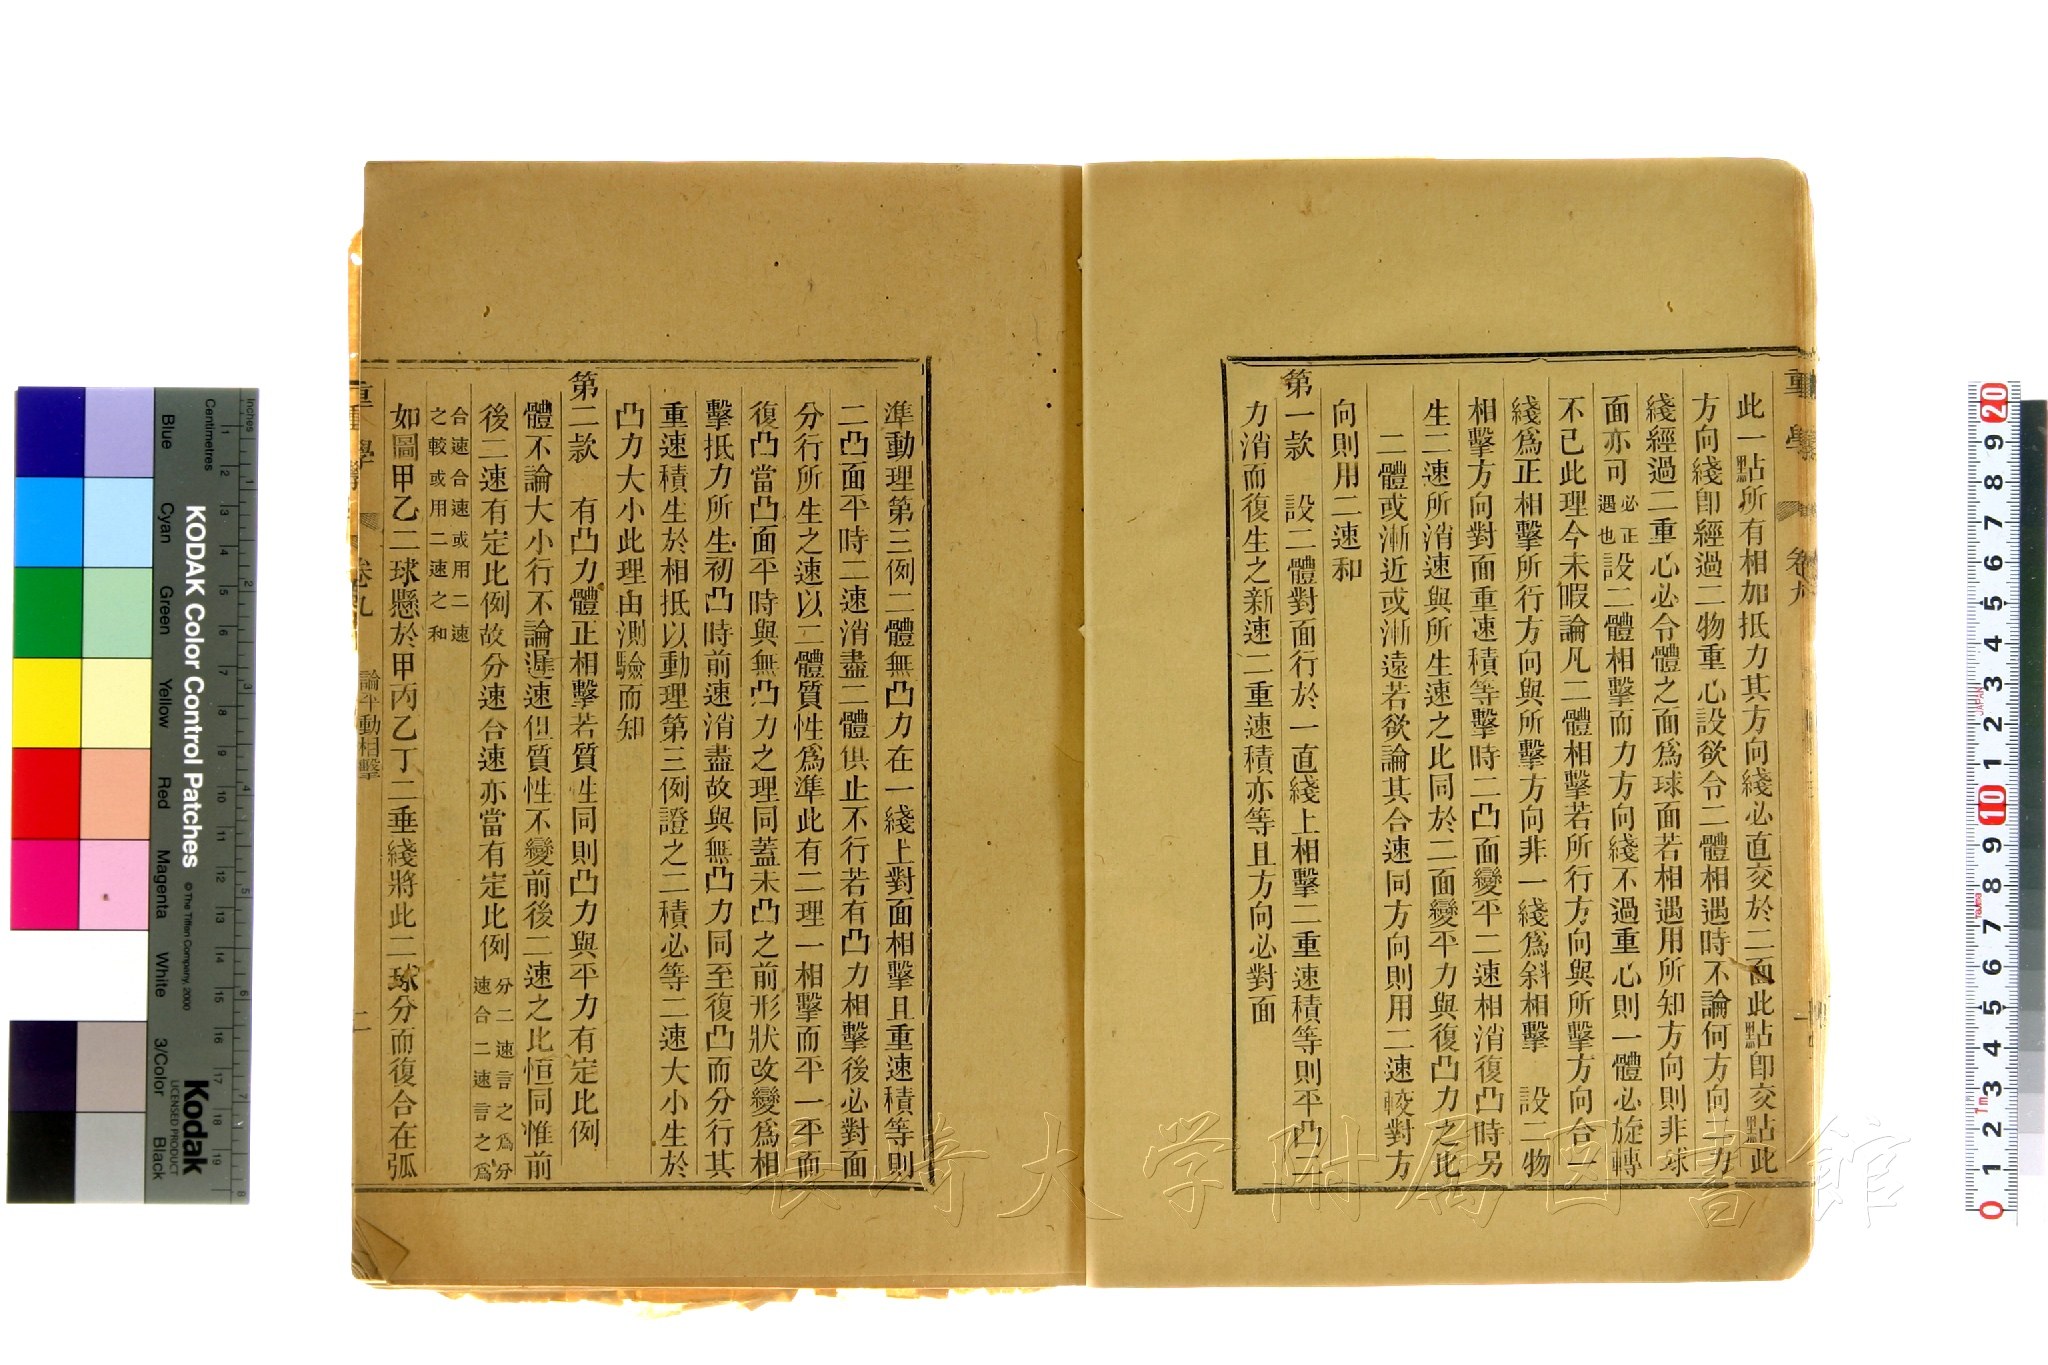 此一點所有相加抵力其方向綫必直交於二面此點卽交點此
方向綫卽經過二物重心設欲令二體相遇時不論何方向力
綫經過二重心必令體之面爲球面若相遇用所知方向則非球
面亦可必正遇也設二體相擊而力方向綫不過重心則一體必旋轉
不已此理今未暇論凡二體相擊若所行方向與所擊方向合一
綫爲正相擊所行方向與所擊方向非一綫爲斜相擊 設二物
相擊方向對面重速積等擊時二凸面變平二速相消復凸時另
生二速所消速與所生速之比同於二面變平力與復凸力之比
二體或漸近或漸遠若欲論其合速同方向則用二速較對方
向則用二速和
第一款 設二體對面行於一直綫上相擊二重速積等則平凸二
力消而復生之新速二重速積亦等且方向必對面
重學 卷九
準動理第三例二體無凸力在一綫上對面相擊且重速積等則
二凸面平時二速消盡二體俱止不行若有凸力相擊後必對面
分行所生之速以二體質性爲準此有二理一相擊而平一平而
復凸當凸面平時與無凸力之理同蓋未凸之前形狀改變爲相
擊抵力所生初凸時前速消盡故與無凸力同至復凸而分行其
重速積生於相抵以動理第三例證之二積必等二速大小生於
凸力大小此理由測驗而知
第二款 有凸力體正相擊若質性同則凸力與平力有定比例
體不論大小行不論遲速但質性不變前後二速之比恒同惟前
後二速有定比例故分速合速亦當有定比例分二速言之爲分速合二速言之爲
合速合速或用二速之較或用二速之和
如圖甲乙二球懸於甲丙乙丁二垂綫將此二球分而復合在弧
重學 卷九 論平動相擊 二
KODAK Color Control Patches
© The Tiffen Company, 2000
Kodak
LICENSED PRODUCT
Inches
Centimetres
Blue
Cyan
Green
Yellow
Red
Magenta
White
3/Color
Black
JAPAN
Tajima
1m
長崎大学附属図書館